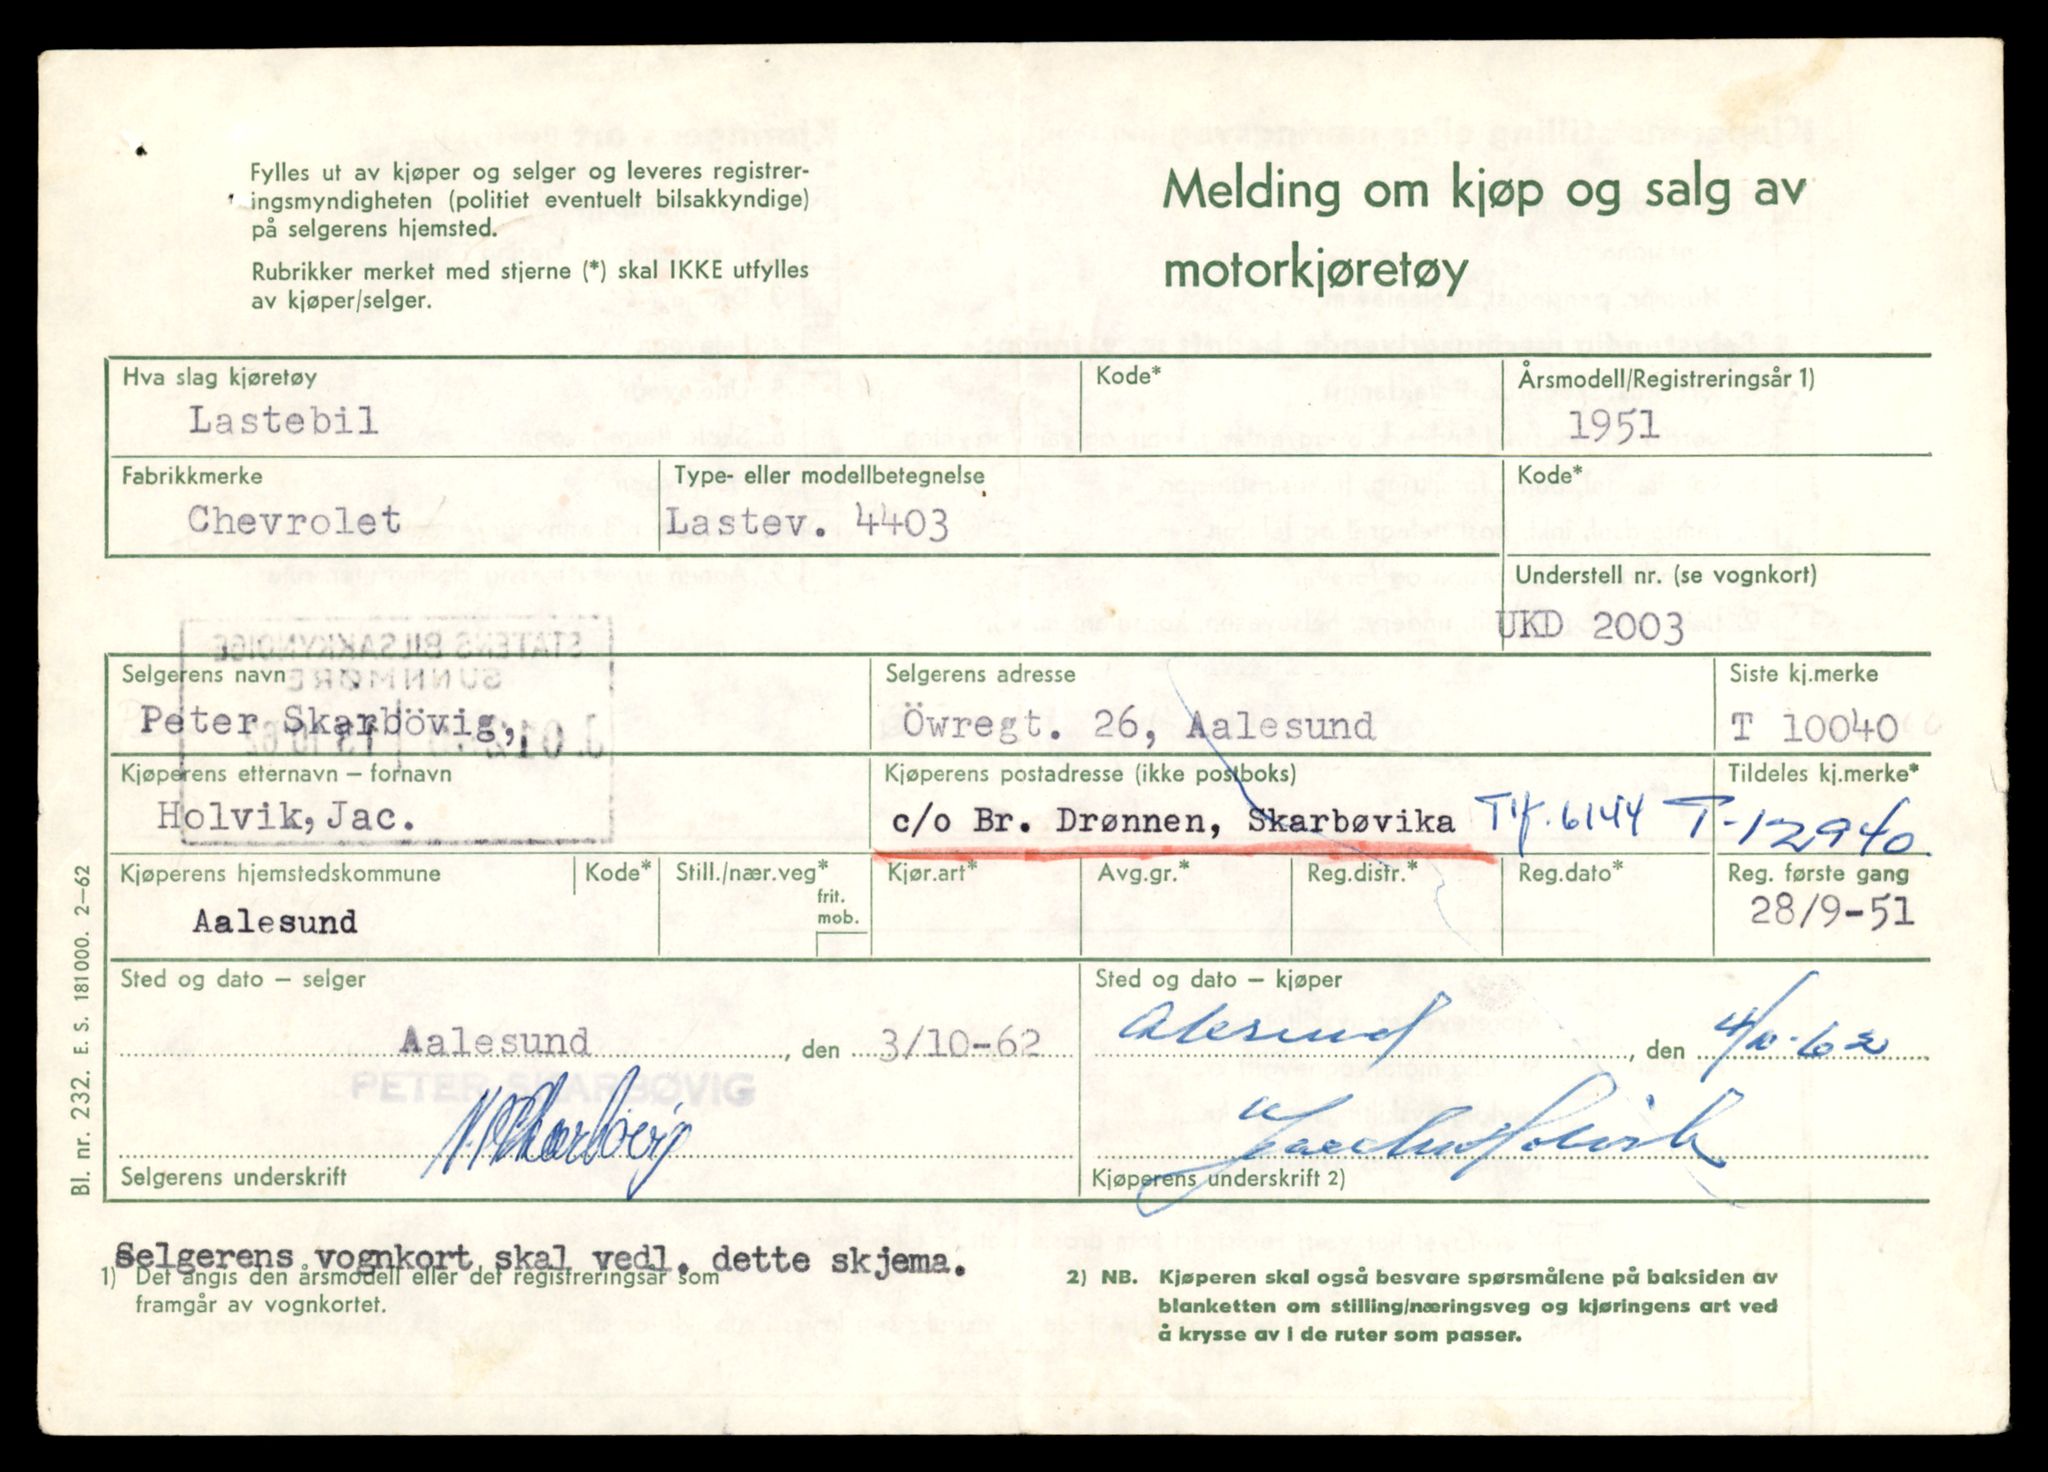 Fylles ut av kjøper og selger og leveres registrer-
ingsmyndigheten (politiet eventuelt bilsakkyndige)
på selgerens hjemsted.
Rubrikker merket med stjerne (*) skal IKKE utfylles
av kjøper/selger.
Melding om kjøp og salg av
motorkjøretøy
Hva slag kjøretøy
Kode*
Årsmodell/Registreringsår 1)
Lastebil
1951
Fabrikkmerke
Type- eller modellbetegnelse
Kode*
Chevrolet
Lastev. 4403
Understell nr. (se vognkort)
UKD 2003
STATENS BILSAKKYNDIGE
SUNNMØRE
Selgerens navn
Selgerens adresse
Siste kj.merke
Peter Skarbövig,
Öwregt. 26, Aalesund
T 10040
Kjøperens etternavn – fornavn
Kjøperens postadresse (ikke postboks)
Tildeles kj.merke*
Holvik, Jac.
c/o Br. Drønnen, Skarbøvika Tlf. 6144
T-12940
Kjøperens hjemstedskommune
Kode*
Still./nær.veg*
frit.
mob.
Kjør.art*
Avg.gr.*
Reg.distr.*
Reg.dato*
Reg. første gang
Aalesund
28/9-51
Sted og dato – selger
Sted og dato – kjøper
Aalesund, den 3/10-62
Alesund, den 4/10-62
PETER SKARBØVIG
Selgerens underskrift
Kjøperens underskrift 2)
Selgerens vognkort skal vedl. dette skjema.
1) Det angis den årsmodell eller det registreringsår som
framgår av vognkortet.
2) NB. Kjøperen skal også besvare spørsmålene på baksiden av
blanketten om stilling/næringsveg og kjøringens art ved
å krysse av i de ruter som passer.
Bl. nr. 232. E. S. 181000. 2–62